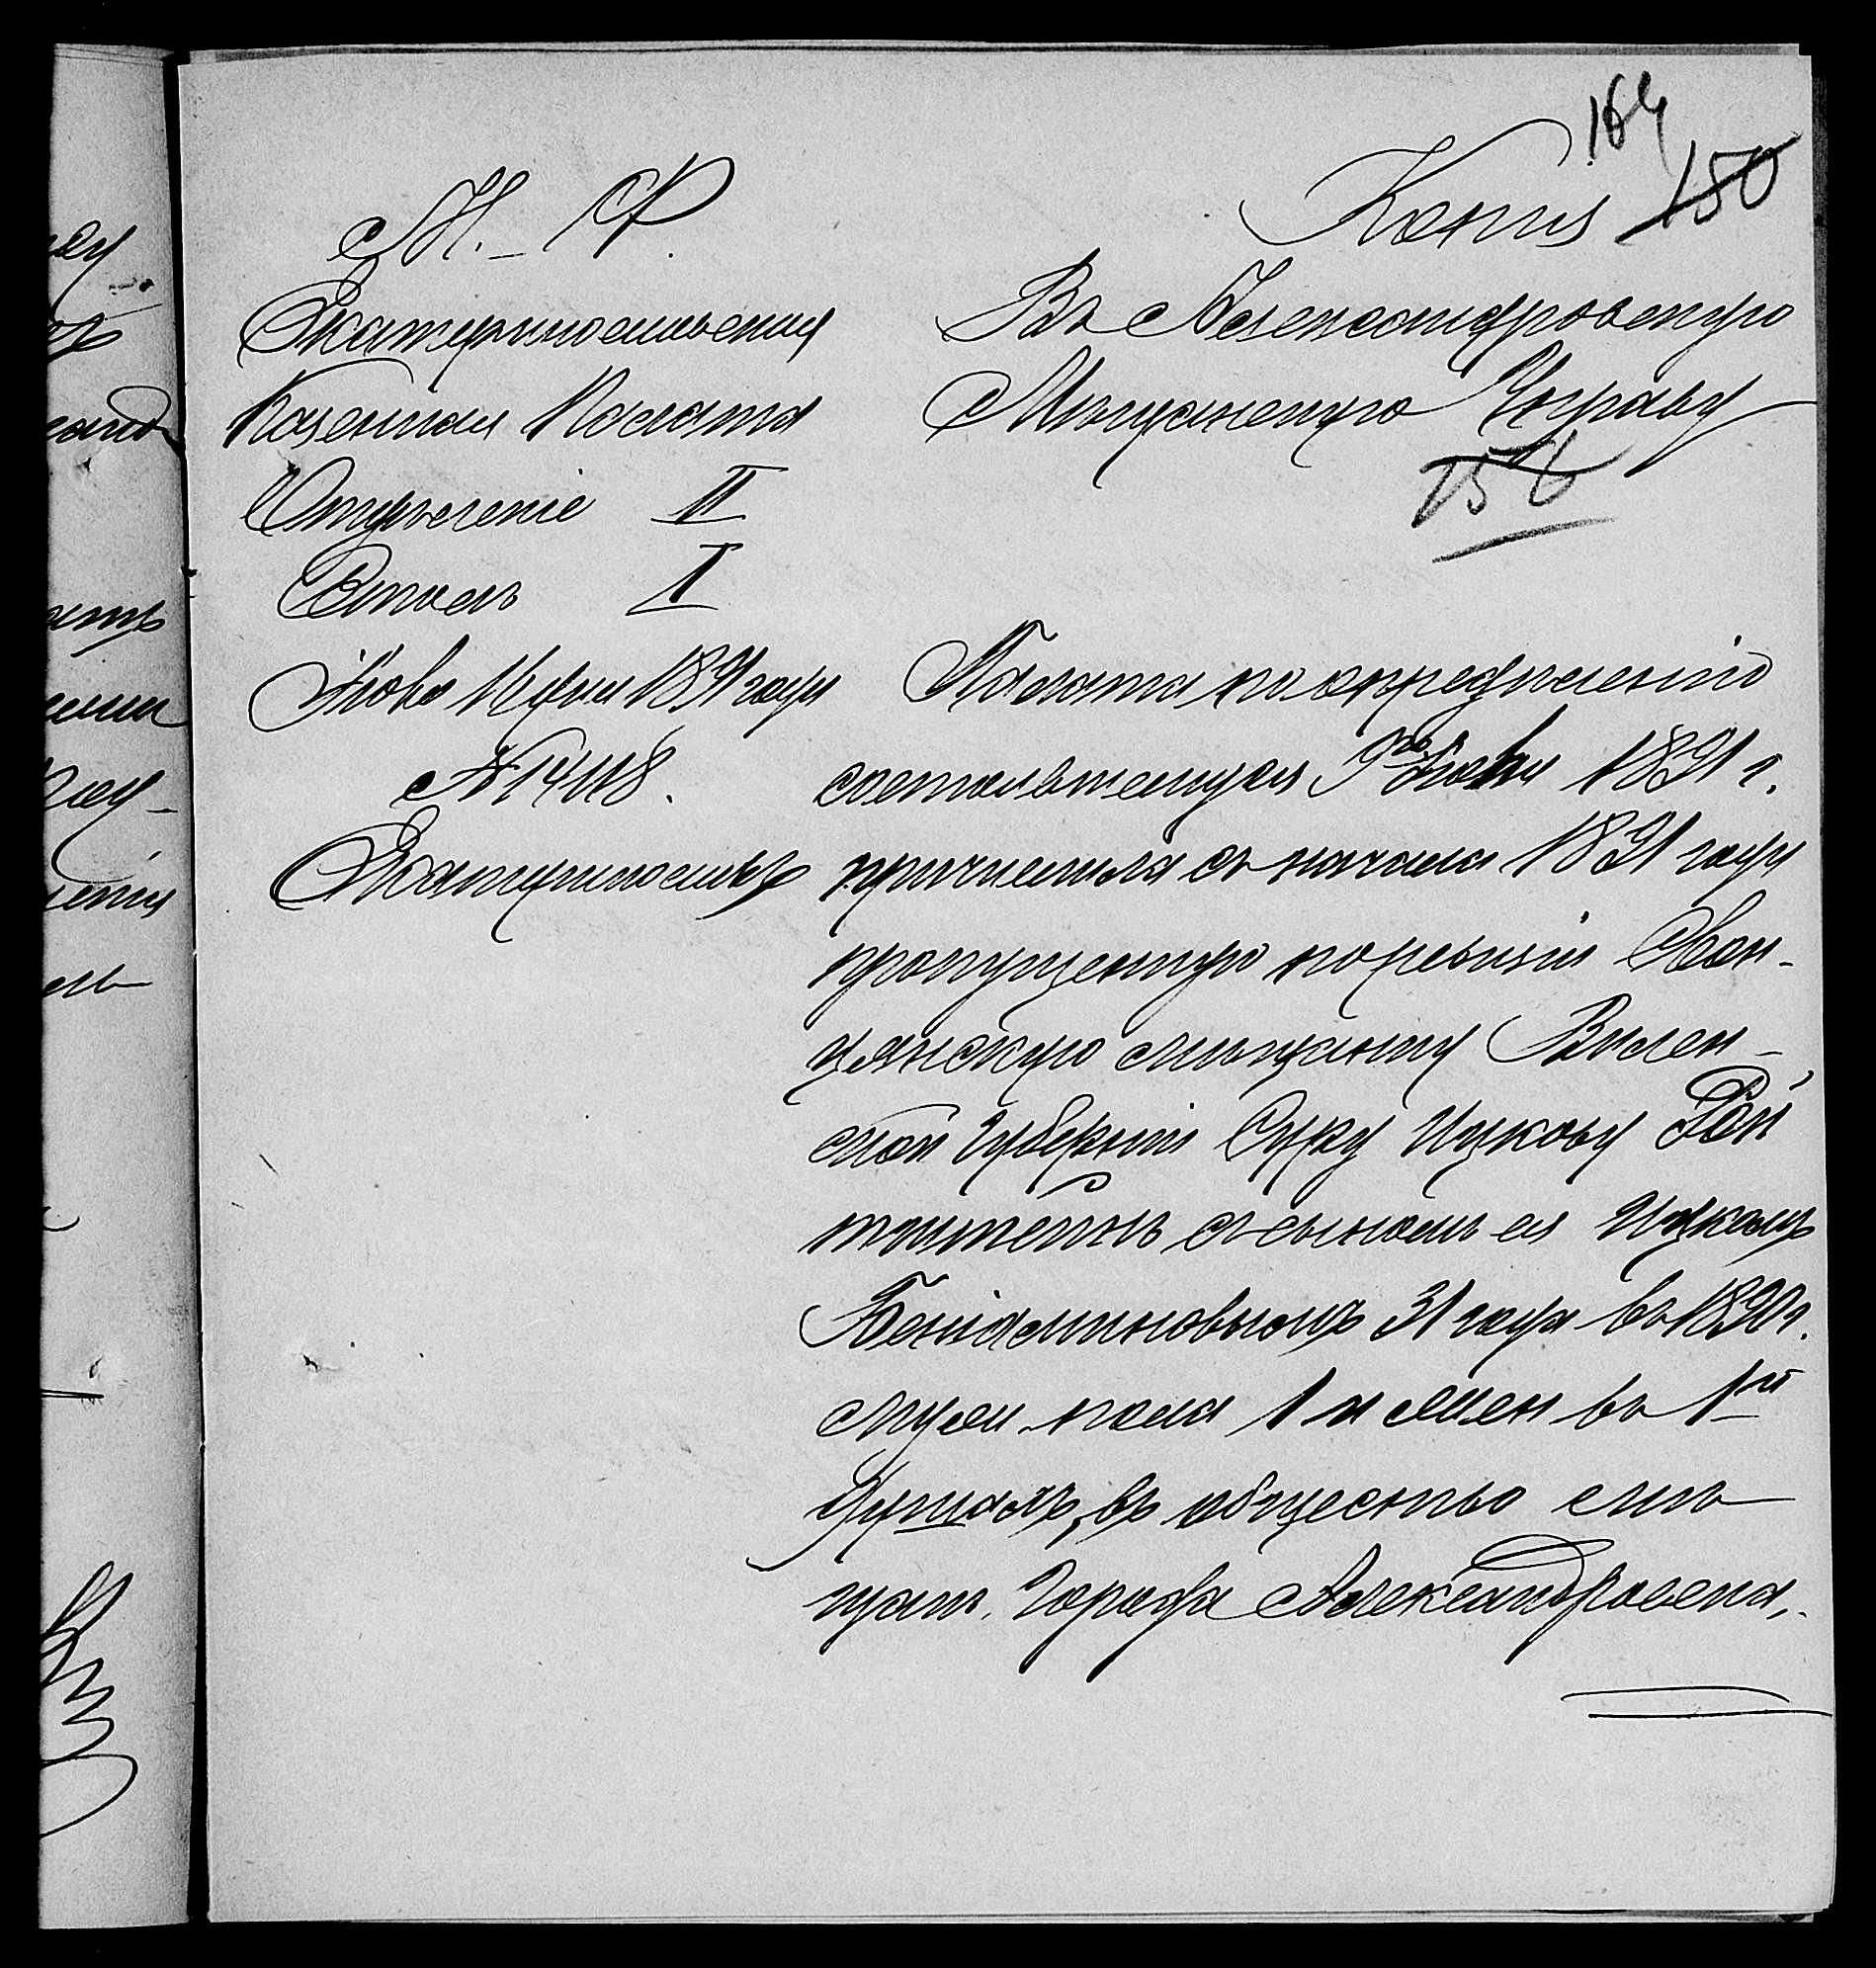 164
Копія 150
М. Ф.
Екатеринославская
Казенная Палата
Отдѣленіе II
Столъ I
Іюня 11 дня 1891 года
№ 14118.
Екатеринославъ
Въ Александровскую
Мѣщанскую Управу
Палата по опредѣленію
состоявшемуся Іюня 1891 г.
причислила съ начала 1891 года
пропущенную по ревизіи Свен-
цянскую мѣщанку Вилен-
ской губерніи Сору Ицкову Рой
съ сыномъ ея Ицкомъ
Беніаминовымъ 31 года въ 1890 г.
муж. пола 1 и жен въ 1й
душахъ, въ общество мѣ
щан. города Александровска.